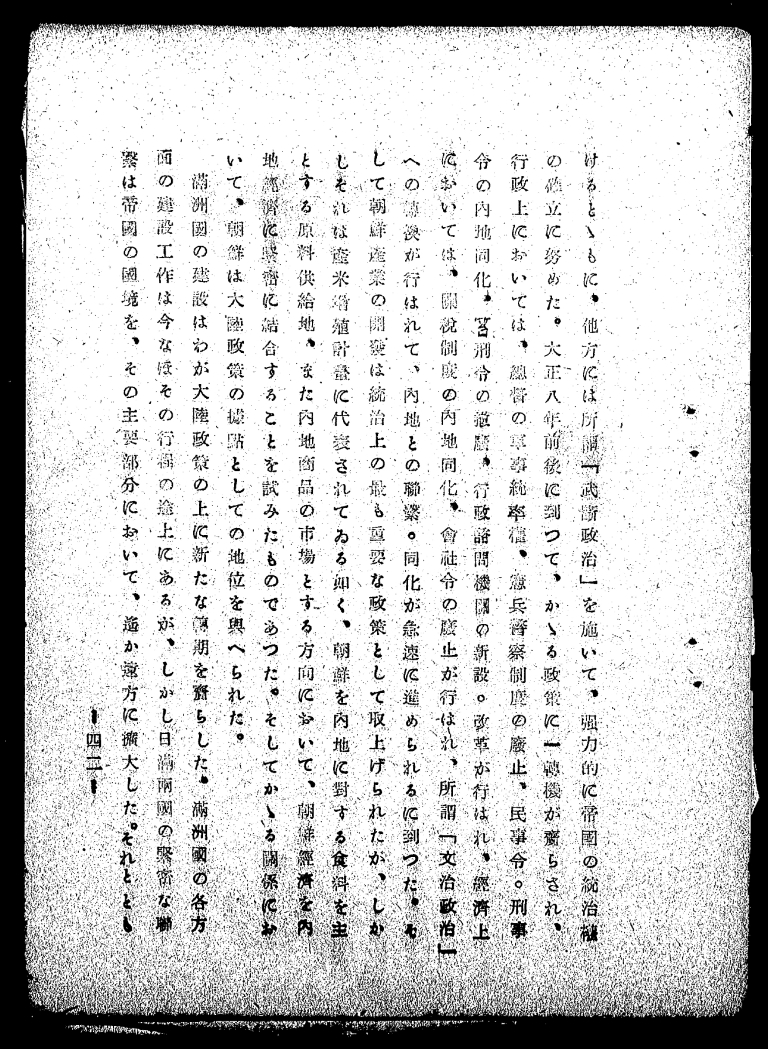 けるとゝもに、他方には所謂「武斷政治」を施いて、强力的に帝國の統治權
の確立に努めた。大正八年前後に到つて、かゝる政策に一轉機が齎らされ、
行政上においては、總督の軍事統率權、憲兵警察制度の廢止、民事令。刑事
令の內地同化、笞刑令の撤廢、行政諮問機關の新設。改革が行はれ、經濟上
においては、關稅制度の內地同化、會社令の廢止が行はれ、所謂「文治政治」
への轉換が行はれて、內地との聯繫。同化が急速に進められるに到つた。そ
して朝鮮產業の開發は統治上の最も重要な政策として取上げられたが、しか
しそれは產米增殖計畫に代表されてゐる如く、朝鮮を內地に對する食料を主
とする原料供給地、また內地商品の市場とする方向において、朝鮮經濟を內
地經濟に緊密に結合することを試みたものであつた。そしてかゝる關係にお
いて、朝鮮は大陸政策の據點としての地位を與へられた。
滿洲國の建設はわが大陸政策の上に新たな劃期を齎らした。滿洲國の各方
面の建設工作は今なほその行程の途上にあるが、しかし日滿兩國の緊密な聯
繫は帝國の國境を、その主要部分において、遙か遠方に擴大した。それととも